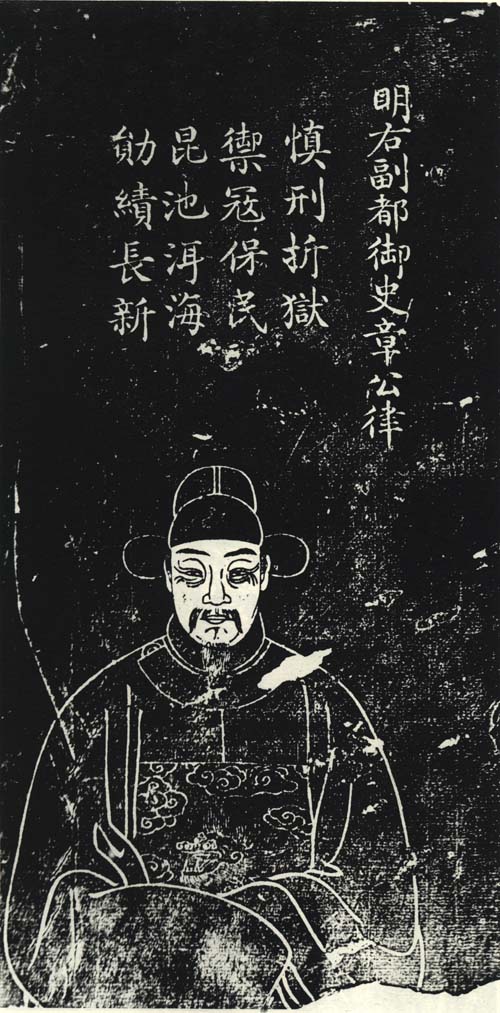 明右副都御史章公律
慎刑折獄
禦寇保民
昆池洱海
勛績長新